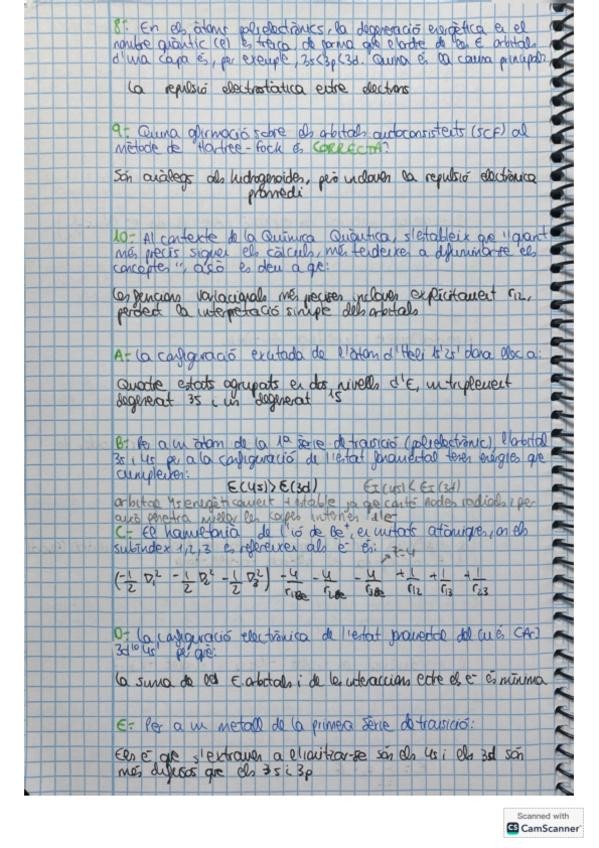 8-. En els àtoms polielectrònics, la degeneració energètica en el
nombre quàntic (l) es trenca, de forma que l'ordre de les E orbitals
d'una capa és, per exemple, 3s<3p<3d. Quina és la causa principal?
La repulsió electrostàtica entre electrons
9-. Quina afirmació sobre els orbitals autoconsistents (SCF) al
mètode de Hartree-Fock és CORRECTA?
Són anàlegs als hidrogenoides, però inclouen la repulsió electrònica
promedi
10-. Al context de la Química Quàntica, s'estableix que "quant
més precís siguen els càlculs, més tendeixen a difuminar-se els
conceptes", açò es deu a que:
Les funcions variacionals més precises inclouen explícitament r12,
perdent la interpretació simple dels orbitals
A-. La configuració excitada de l'àtom d'Heli 1s'2s' dona lloc a:
Quatre estats agrupats en dos nivells d'E, un triplement
degenerat 3S i un degenerat 1S
B-. Per a un àtom de la 1ª sèrie de transició (polielectrònic), l'orbital
3s i 4s per a la configuració de l'estat fonamental tenen energies que
cumpleixen:
E(4s)>E(3d) E(4s)<E(3d)
orbital 4s energèticament + estable ja que conté nodes radials i per
això penetra millor les capes internes d'e-
C-. El hamiltonià de l'ió de Be+, en unitats atòmiques, on els
subíndex 1,2,3 es refereixen als e- és:
Z=4
(-1/2 ∇1² - 1/2 ∇2² - 1/2 ∇3²) - 4/r1Be - 4/r2Be - 4/r3Be + 1/r12 + 1/r13 + 1/r23
D-. La configuració electrònica de l'estat fonamental del Cu és [Ar]
3d10 4s1 perquè:
La suma de les E orbitals i de les interaccions entre els e- és mínima
E-. Per a un metall de la primera sèrie de transició:
Els e- que s'extrauen a l'ionitzar-se són els 4s i els 3d són
més difusos que els 3s i 3p
Scanned with
CS CamScanner